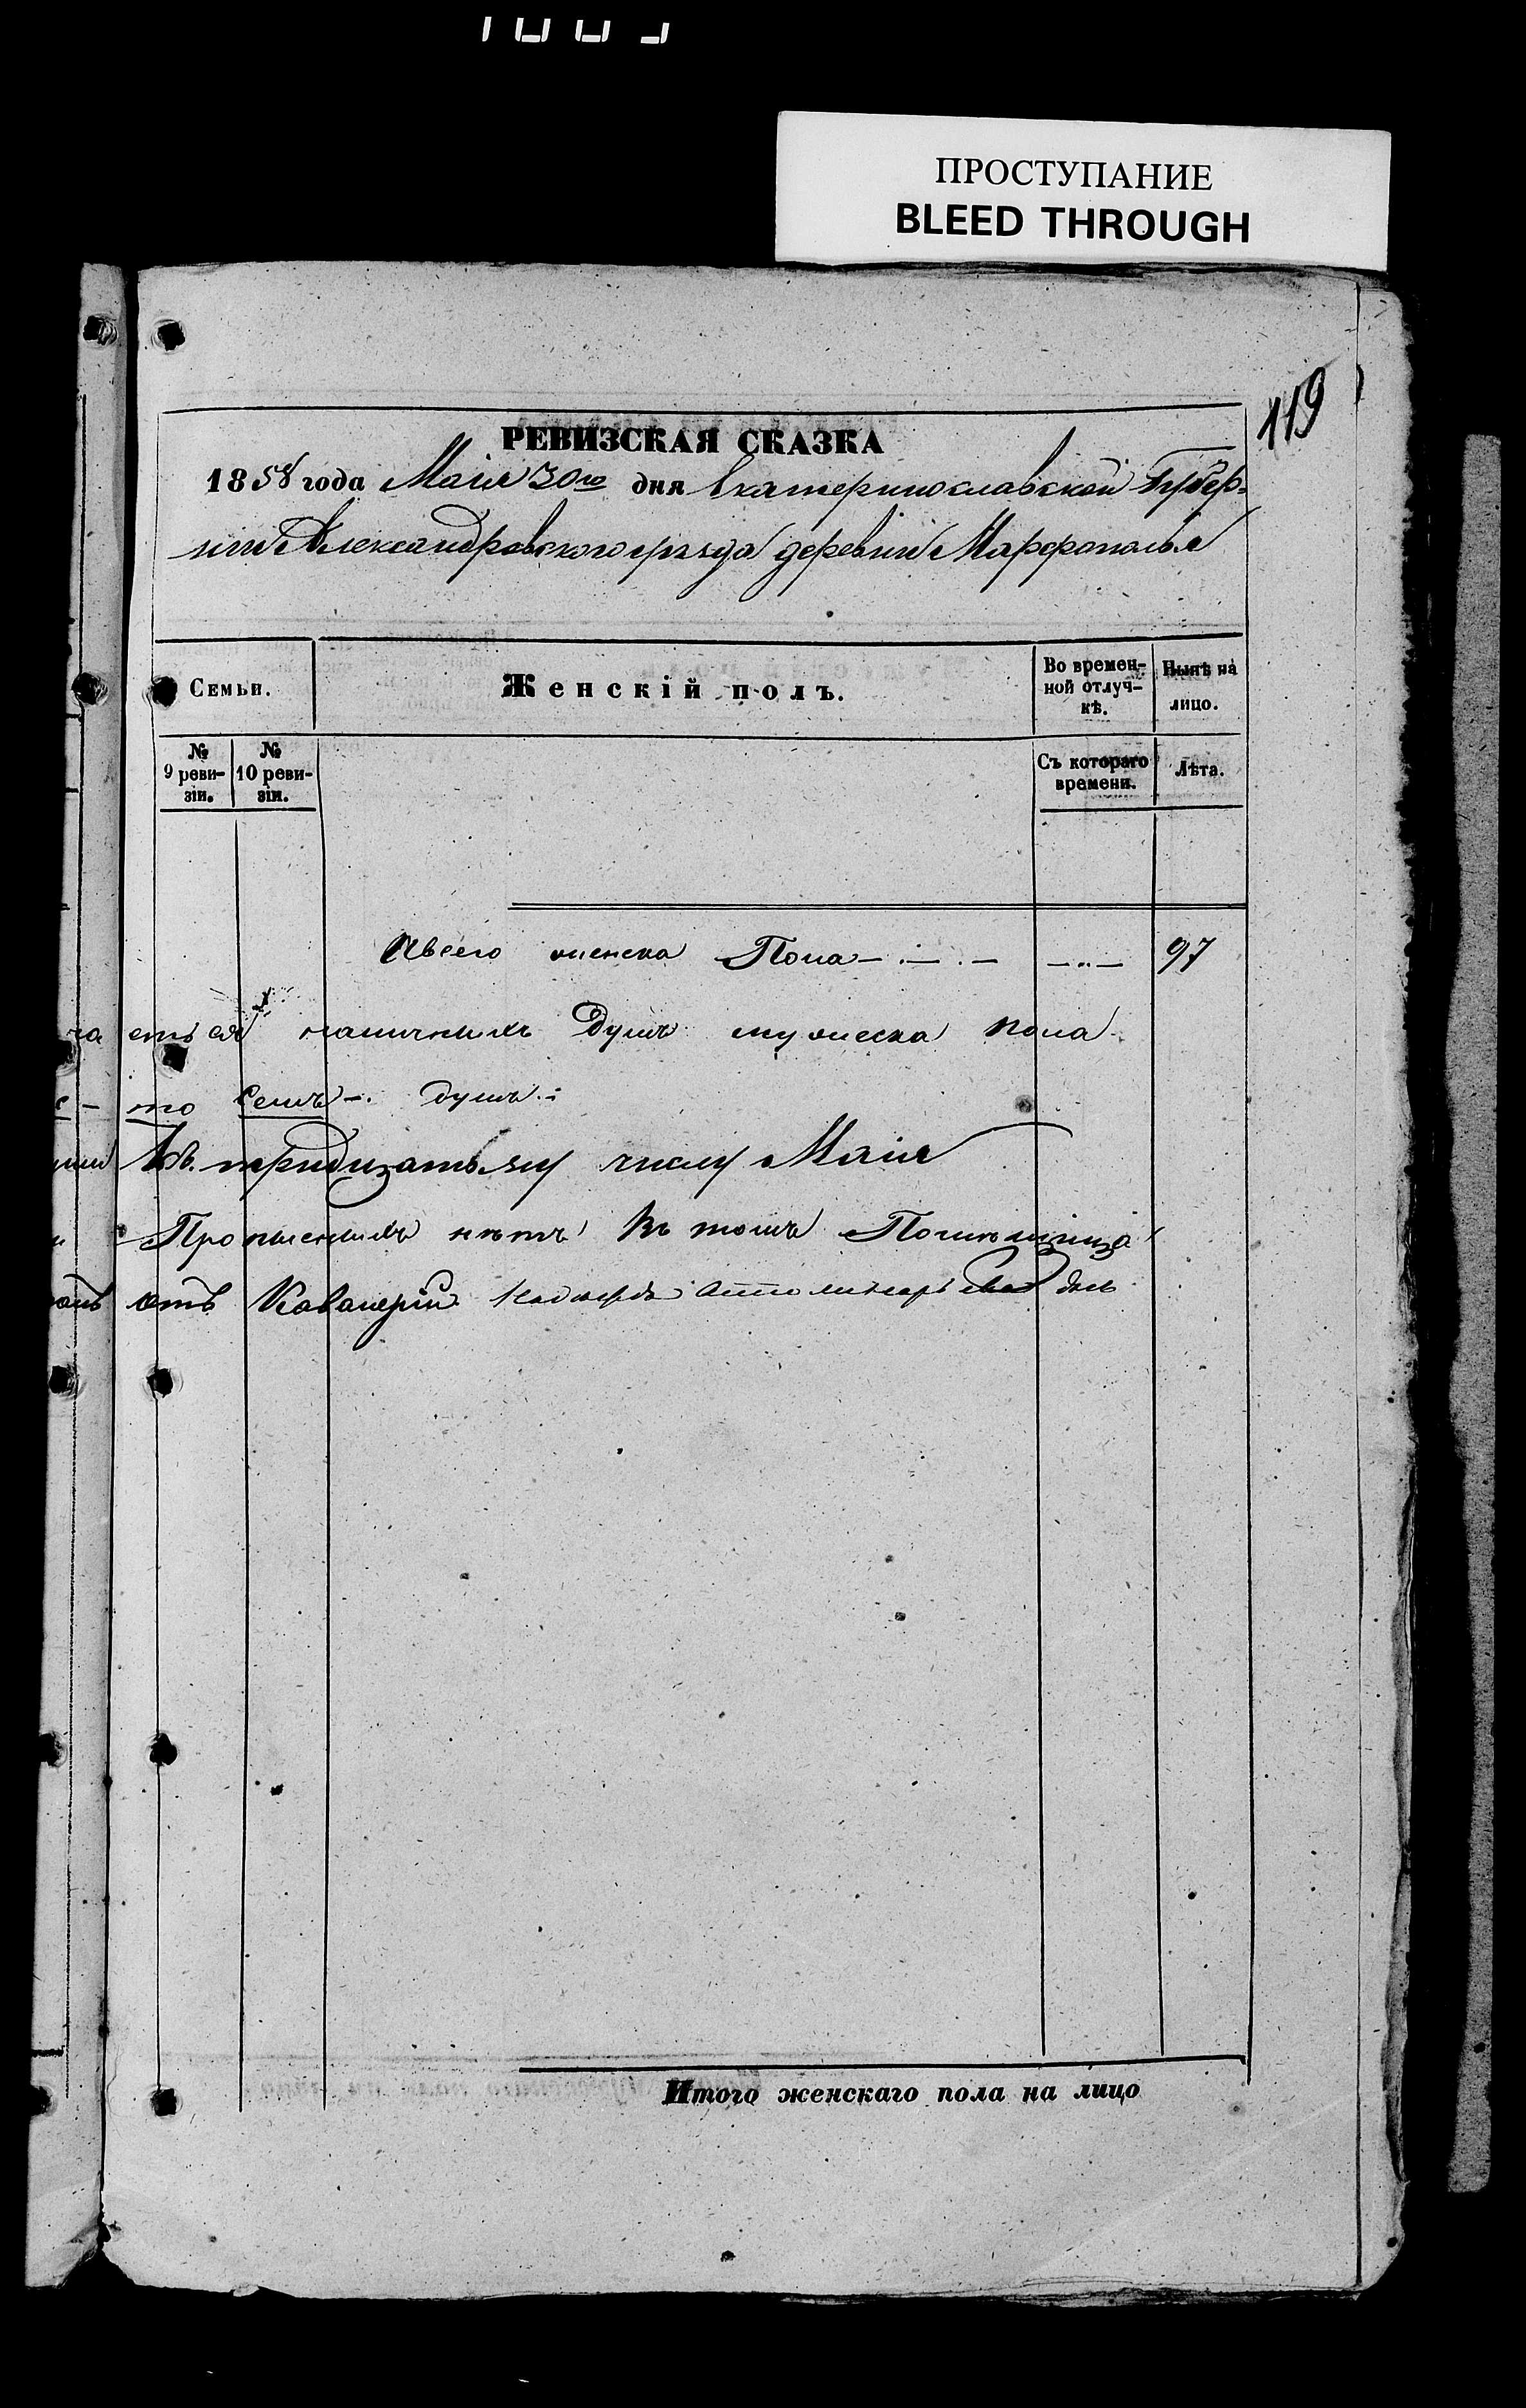 ПРОСТУПАНИЕ
BLEED THROUGH
119
РЕВИЗСКАЯ СКАЗКА
1858 года Маія 30го дня Екатеринославской Губер-
ніи Александровскаго уѣзда деревни Марфополья
Семьи.
Женскій полъ.
Во времен-
ной отлуч-
кѣ.
Нынѣ на
лицо.
№
9 реви-
зіи.
№
10 реви-
зіи.
Съ котораго
времени.
Лѣта.
Всего женска Пола 97
ется наличныхъ Душъ мужеска пола
то Семь душъ
Къ тридцатому числу Маія
Прописныхъ нѣтъ Въ томъ Помѣщица
отъ Кавалеріи
Итого женскаго пола на лицо